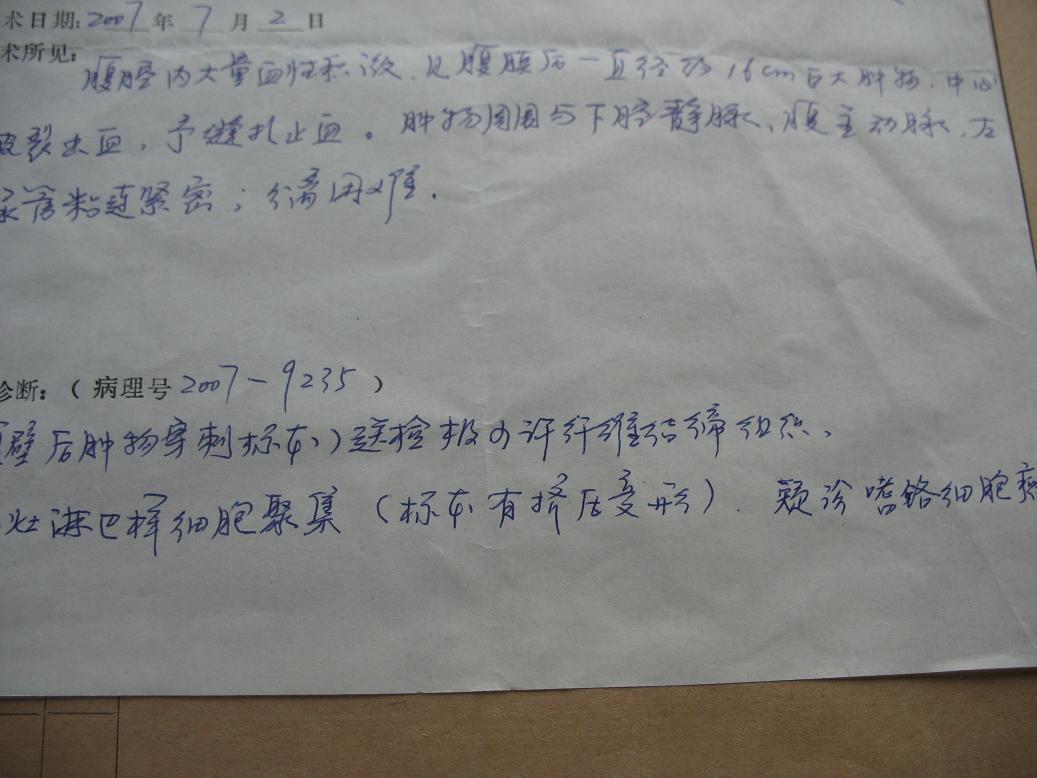 术日期:2007年7月2日
术所见:
腹腔内大量血性积液.见腹膜后一直径约16cm巨大肿物.中心
破裂出血,予缝扎止血。肿物周围与下腔静脉、腹主动脉、左
尿管粘连紧密;分离困难.
诊断:(病理号2007-9235)
壁后肿物穿刺标本)送检极少许纤维结缔组织、
灶淋巴样细胞聚集(标本有挤压变形).疑诊嗜铬细胞瘤